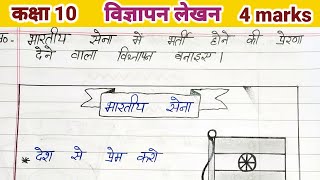 कक्षा 10 विज्ञापन लेखन 4 marks
भारतीय सेना में भर्ती होने की प्रेरणा
देने वाला विज्ञापन बनाइए।
भारतीय सेना
* देश से प्रेम करो